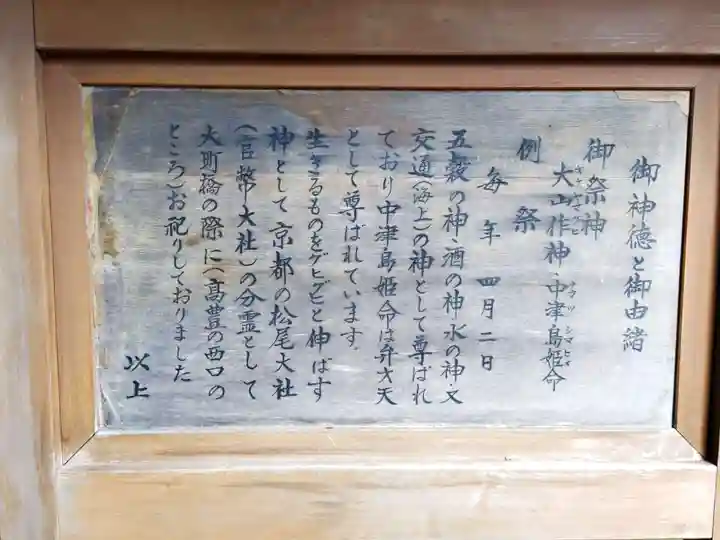 御神徳と御由緒
御祭神
大山作神・中津島姫命
例祭
毎年四月二日
五穀の神・酒の神水の神・文
交通(海上)の神として尊ばれ
ており中津島姫命は弁才天
として尊ばれています。
生きるものをグヒグヒと伸ばす
神として京都の松尾大社
(官幣大社)の分霊として
大町橋の際に(高豊の西口の
ところ)お祀りしておりました
以上